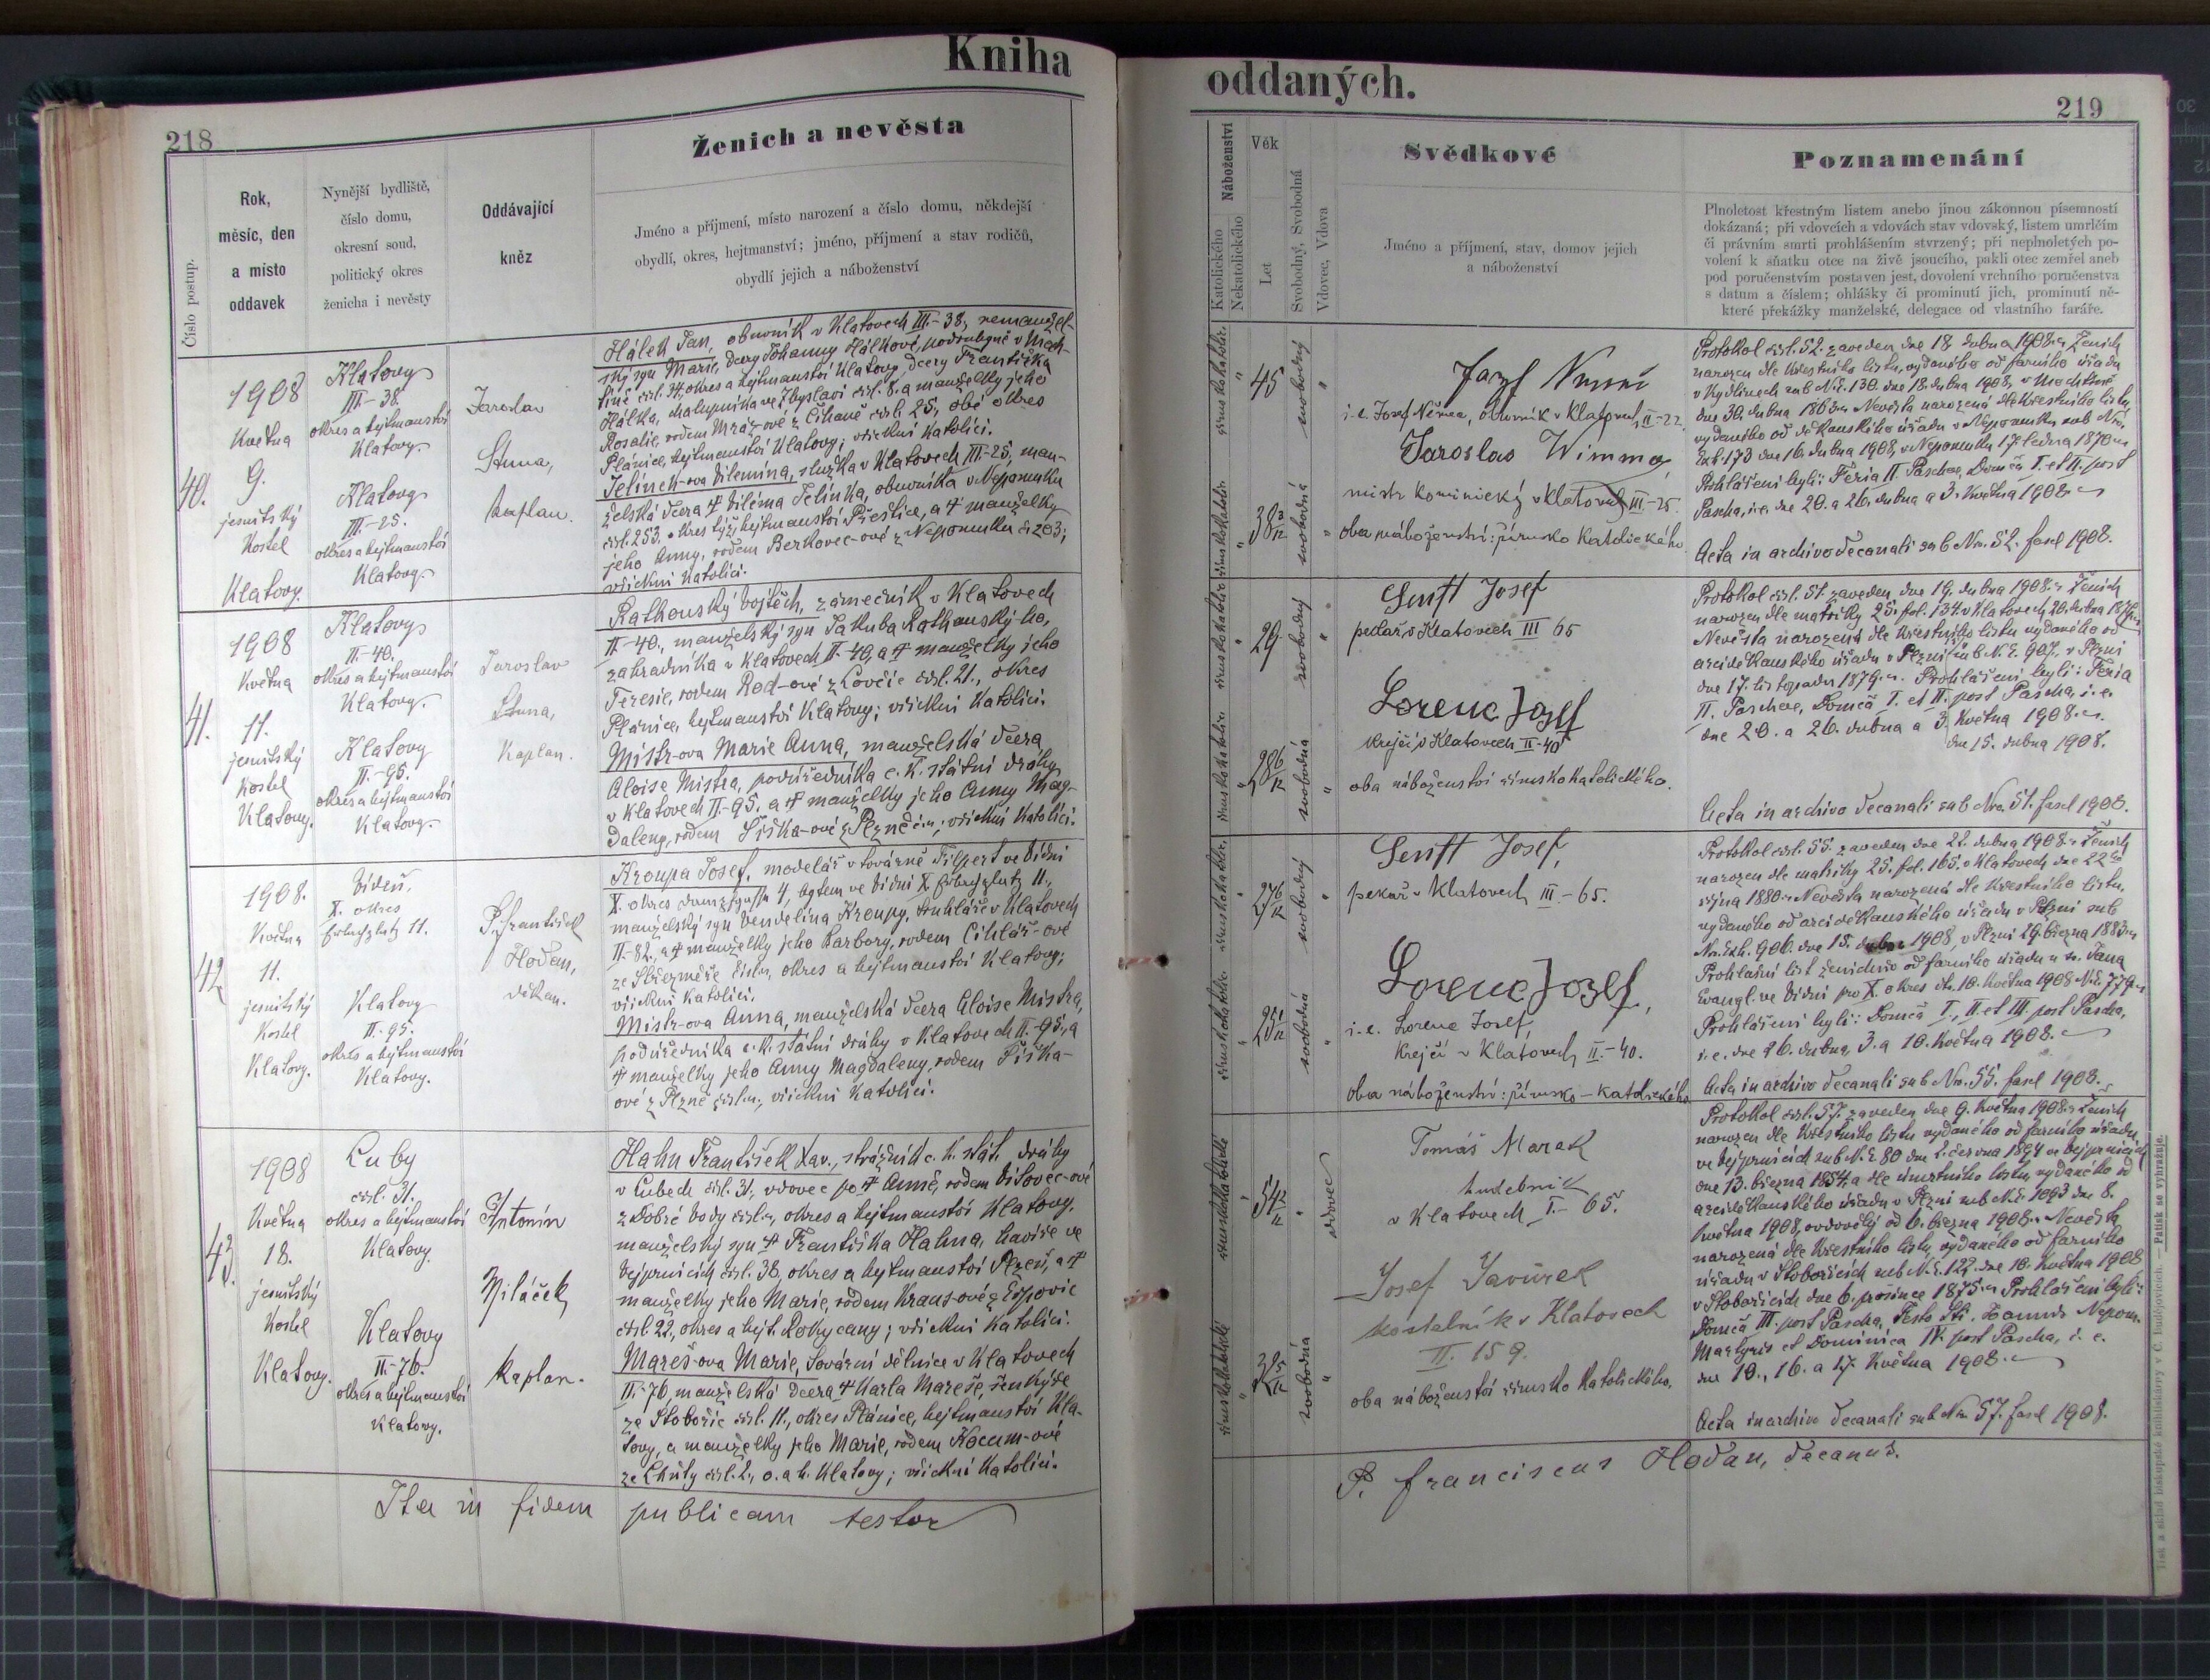 Kniha
218
Ženich a nevěsta
Číslo postup.
Rok,
měsíc, den
a místo
oddavek
Nynější bydliště,
číslo domu,
okresní soud,
politický okres
ženicha i nevěsty
Oddávající
kněz
Jméno a příjmení, místo narození a číslo domu, někdejší
obydlí, okres, hejtmanství; jméno, příjmení a stav rodičů,
obydlí jejich a náboženství
40.
1908
Května
9.
jesuitský
Kostel
Klatovy.
Klatovy
III.-38.
okres a hejtmanství
Klatovy.
Klatovy
III.-25.
okres a hejtmanství
Klatovy.
Jaroslav
kaplan.
Hálek Jan, obuvník v Klatovech III.-38, nemanžel-
ský syn Marie, dcery Johanny Hálkové, podruhyně v Moch-
tíně čísl. 34, okres a hejtmanství Klatovy, dcery Františka
Hálka, chalupníka ve Zbyslavi čísl. 8. a manželky jeho
Rosalie, rodem Mráz-ové z Číhaně čísl. 25, obé okres
Plánice, hejtmanství Klatovy; všickni katolíci.
Jelínek-ova Vilemína, služka v Klatovech III.-25, man-
želská dcera † Viléma Jelínka, obuvníka v Nepomuku
čísl. 253. okres týž, hejtmanství Přeštice, a † manželky
jeho Anny, rodem Berkovec-ové z Nepomuku č. 203;
všickni katolíci.
41.
1908
Května
11.
jesuitský
Kostel
Klatovy.
Klatovy
II.-40.
okres a hejtmanství
Klatovy.
Klatovy
II.-95.
okres a hejtmanství
Klatovy.
Jaroslav
Kaplan.
Rathouský Vojtěch, zámečník v Klatovech
II.-40., manželský syn Jakuba Rathouský-ho,
zahradníka v Klatovech II.-40, a † manželky jeho
Teresie, rodem Rod-ové z Lovčic čísl. 21., okres
Plánice, hejtmanství Klatovy; všickni katolíci.
Mistr-ova Marie Anna, manželská dcera
Aloise Mistra, podúředníka c. k. státní dráhy
v Klatovech II.-95. a † manželky jeho Anny Mag-
daleny, rodem Šiška-ové z Plzně č. n.; všickni katolíci.
42
1908.
Května
11.
jesuitský
Kostel
Klatovy.
Vídeň,
X. okres
11.
Klatovy
II.-95.
okres a hejtmanství
Klatovy.
P. František
Hoďan,
děkan.
Kroupa Josef, modelář v továrně Filpert ve Vídni
X. okres 4, bytem ve Vídni X 11.,
manželský syn Vendelína Kroupy, truhláře v Klatovech
II.-82., a † manželky jeho Barbory, rodem Cihlář-ové
ze Střezměře čísl. n, okres a hejtmanství Klatovy;
všickni katolíci.
Mistr-ova Anna, manželská dcera Aloise Mistra,
podúředníka c. k. státní dráhy v Klatovech II.-95, a
† manželky jeho Anny Magdaleny, rodem Šiška-
ové z Plzně čísl. n., všickni katolíci.
43.
1908
Května
18.
jesuitský
Kostel
Klatovy.
Luby
čísl. 31.
okres a hejtmanství
Klatovy.
Klatovy
II.-76.
okres a hejtmanství
Klatovy.
Antonín
Miláček
kaplan.
Hahn František Xav., strážník c. k. stát. dráhy
v Lubech čísl. 31, vdovec po † Anně, rodem Vítovec-ové
z Dobré Vody čísl. n, okres a hejtmanství Klatovy.
manželský syn † Františka Hahna, havíře ve
Vejprnicích čísl. 38, okres a hejtmanství Plzeň, a †
manželky jeho Marie, rodem Kraus-ové z Ejpovic
čísl. 22, okres a hejt. Rokycany; všickni katolíci.
Mareš-ova Marie, tovární dělnice v Klatovech
II.-76, manželská dcera † Karla Mareše, šenkýře
ze Stobořic čísl. 11., okres Plánice, hejtmanství Kla-
tovy, a manželky jeho Marie, rodem Kocum-ové
ze Lhůty čísl. 2., o. a h. Klatovy; všickni katolíci.
Ita in fidem publicam testor
oddaných.
219
Náboženství
Katolického
Nekatolického
Věk
Let
Svobodný, Svobodná
Vdovec, Vdova
Svědkové
Jméno a příjmení, stav, domov jejich
a náboženství
Poznamenání
Plnoletost křestným listem anebo jinou zákonnou písemností
dokázaná; při vdovcích a vdovách stav vdovský, listem umrlčím
či právním smrti prohlášením stvrzený; při neplnoletých po-
volení k sňatku otce na živě jsoucího, pakli otec zemřel aneb
pod poručenstvím postaven jest, dovolení vrchního poručenstva
s datum a číslem; ohlášky či prominutí jich, prominutí ně-
které překážky manželské, delegace od vlastního faráře.
římskokatolic.
45
svobodný
římskokatolic.
38 3/12
svobodná
i. e. Josef Němec, obuvník v Klatovech, II-22
Jaroslav Wimmer
mistr kominický v Klatovech III-25.
oba náboženství: římsko katolického.
Protokol čísl. 52. zaveden dne 18. dubna 1908. Ženich
narozen dle křestního listu, vydaného od farního úřadu
v Kydlinech sub N. E. 130. dne 18. dubna 1908, v Mochtíně
dne 30. dubna 1863. Nevěsta narozená dle křestního listu,
vydaného od děkanského úřadu v Nepomuku sub Nro.
Exh. 173 dne 16. dubna 1908, v Nepomuku 17. ledna 1870
Prohlášení byli: Feria II. Paschae, Domca I. et II. post
Pascha, i. e. dne 20. a 26. dubna a 3. května 1908
Acta in archivo decanali sub Nro. 52. fascl 1908.
římskokatolic.
29
svobodný
římskokatolic.
28 6/12
svobodná
Senft Josef
pekař v Klatovech III 65
Lorenc Josef
krejčí v Klatovech II-40
oba náboženství římskokatolického.
Protokol čísl. 51. zaveden dne 19. dubna 1908. Ženich
narozen dle matriky 25. fol. 134. v Klatovech 20. dubna
Nevěsta narozená dle křestního listu vydaného od
arciděkanského úřadu v Plzni sub N. E. 907. v Plzni
dne 17. listopadu 1879. Prohlášeni byli: Feria
II. Paschae, Domca I. et II. post Pascha, i. e.
dne 20. a 26. dubna a 3. května 1908.
dne 15. dubna 1908.
Acta in archivo decanali sub Nro. 51. fascl 1908.
římskokatolic.
27 6/12
svobodný
římskokatolic.
25 1/12
svobodná
Senft Josef,
pekař v Klatovech III-65.
Lorenc Josef,
i. e. Lorenc Josef,
krejčí v Klatovech II.-40.
oba náboženství: římsko-katolického
Protokol čísl. 55. zaveden dne 22. dubna 1908. Ženich
narozen dle matriky 25. fol. 165. v Klatovech dne 22ho
října 1880. Nevěsta narozená dle křestního listu,
vydaného od arciděkanského úřadu v Plzni sub
Nro. Exh. 906. dne 15. dubna 1908, v Plzni 29. března 1883
Prohlašní list ženichův od farního úřadu u sv. Jana
Evangl. ve Vídni pro X. okres dto. 10. května 1908 N. E. 779.
Prohlášeni byli: Domca I., II. et III. post Pascha,
i. e. dne 26. dubna, 3. a 10. května 1908.
Acta in archivo decanali sub Nro. 55. fascl 1908.
římskokatolické
54 2/12
vdovec
římskokatolické
32 5/12
svobodná
Tomáš Marek
hudebník
v Klatovech I.-65.
Josef Javůrek
kostelník v Klatovech
II. 159.
oba náboženství římsko katolického.
Protokol čísl. 57. zaveden dne 9. května 1908. Ženich
narozen dle křestního listu vydaného od farního úřadu
ve Vejprnicích sub N. E. 80 dne 2. června 1894 ve Vejprnicích
dne 13. března 1854, a dle úmrtního listu, vydaného od
arciděkanského úřadu v Plzni sub N. E. 1093 dne 8.
května 1908, ovdovělý od 6. března 1908. Nevěsta
narozená dle křestního listu, vydaného od farního
úřadu v Stobořicích sub N. E. 122. dne 10. května 1908
v Stobořicích dne 6. prosince 1875. Prohlášeni byli:
Domca III. post Pascha, Festo Sti. Joannis Nepom.
Martyris et Dominica IV. post Pascha, i. e.
dne 10., 16. a 17. května 1908.
Acta in archivo decanali sub Nro. 57. fascl 1908.
P. Franciscus Hoďan, decanus.
Tisk a sklad biskupské knihtiskárny v Č. Budějovicích. — Patisk se vyhražuje.